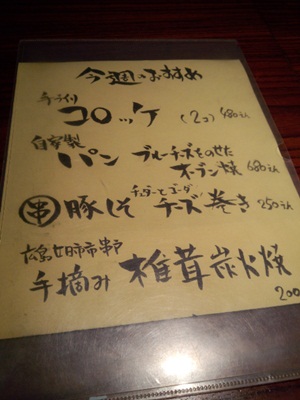 今週のおすすめ
コロッケ (2コ) 480えん
自家製
パン ブルーチーズをのせた
オーブン焼 680えん
チェダーとゴーダ
串 豚しそ チーズ巻き 250えん
広島廿日市市串戸
手摘み 椎茸炭火焼
200